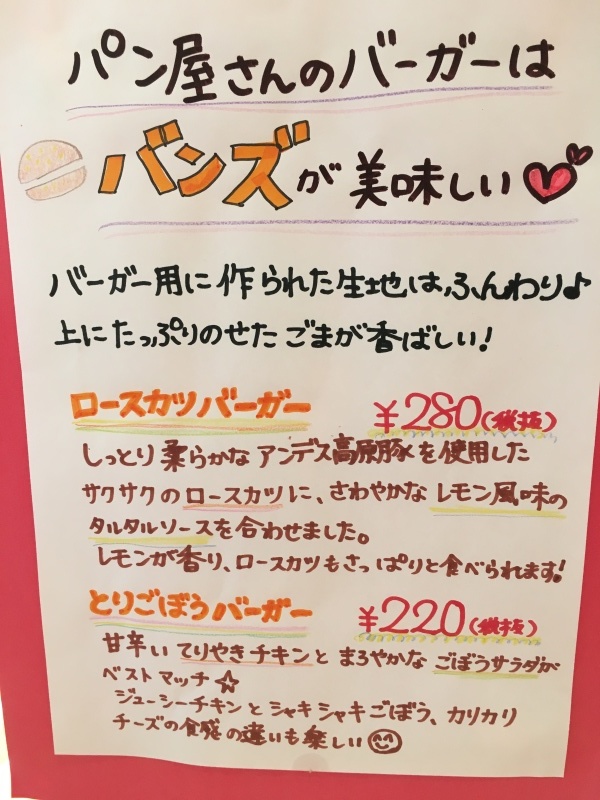 パン屋さんのバーガーは
バンズが美味しい
バーガー用に作られた生地は、ふんわり♪
上にたっぷりのせたごまが香ばしい!
ロースカツバーガー ¥280(税抜)
しっとり柔らかなアンデス高原豚を使用した
サクサクのロースカツに、さわやかなレモン風味の
タルタルソースを合わせました。
レモンが香り、ロースカツもさっぱりと食べられます!
とりごぼうバーガー ¥220(税抜)
甘辛いてりやきチキンとまろやかなごぼうサラダが
ベストマッチ☆
ジューシーチキンとシャキシャキごぼう、カリカリ
チーズの食感の違いも楽しい